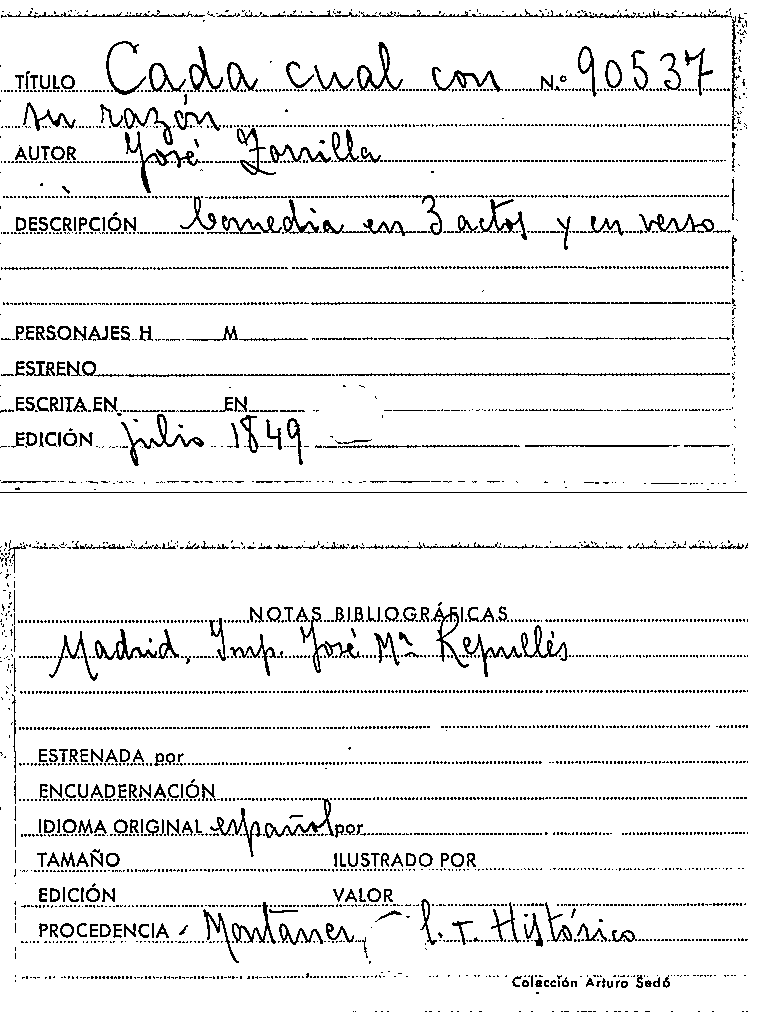 TÍTULO Cada cual con N.º 90537
su razón
AUTOR José Zorrilla
DESCRIPCIÓN Comedia en 3 actos y en verso
PERSONAJES H M
ESTRENO
ESCRITA EN EN
EDICIÓN julio 1849
NOTAS BIBLIOGRÁFICAS
Madrid, Imp. José Mª Repullés
ESTRENADA por
ENCUADERNACIÓN
IDIOMA ORIGINAL español por
TAMAÑO ILUSTRADO POR
EDICIÓN VALOR
PROCEDENCIA Montaner, C. T. Histórico
Colección Arturo Sedó